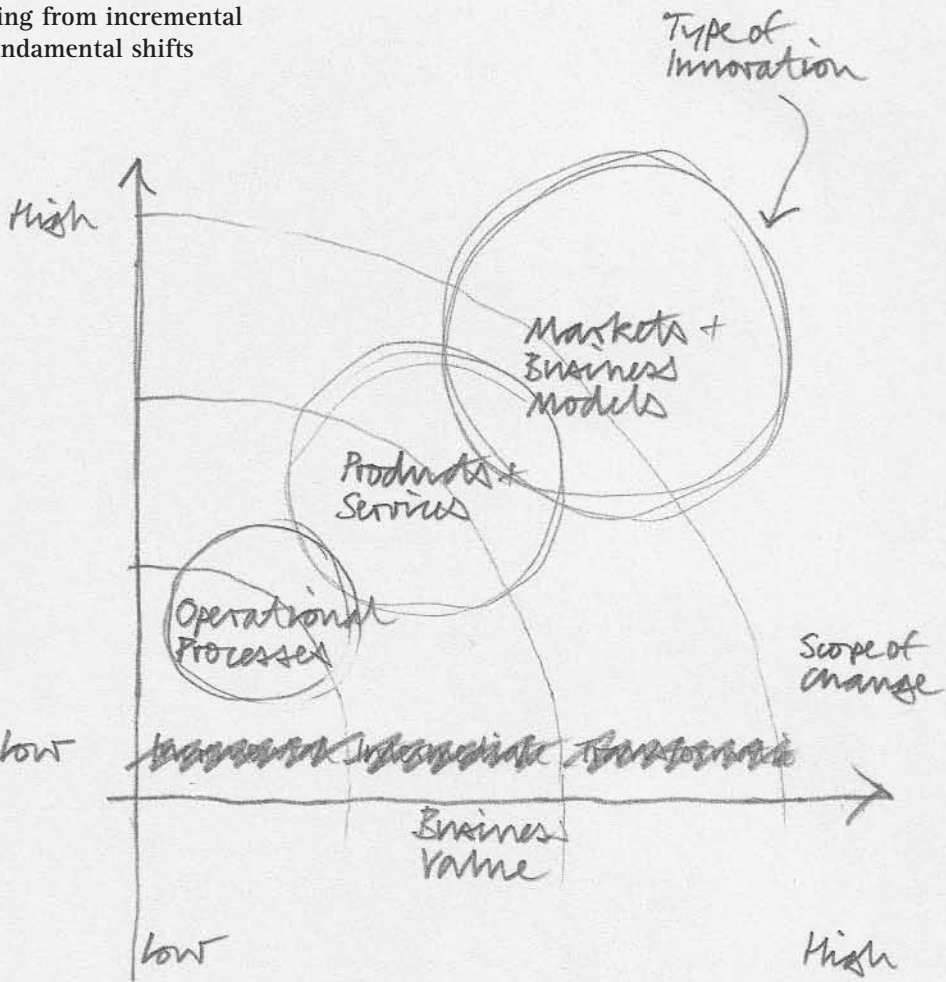 ing from incremental
ndamental shifts
Type of
Innovation
High
Markets +
Business
Models
Products +
Services
Operational
Processes
Scope of
change
Low
Incremental Intermediate
Business
Value
Low
High